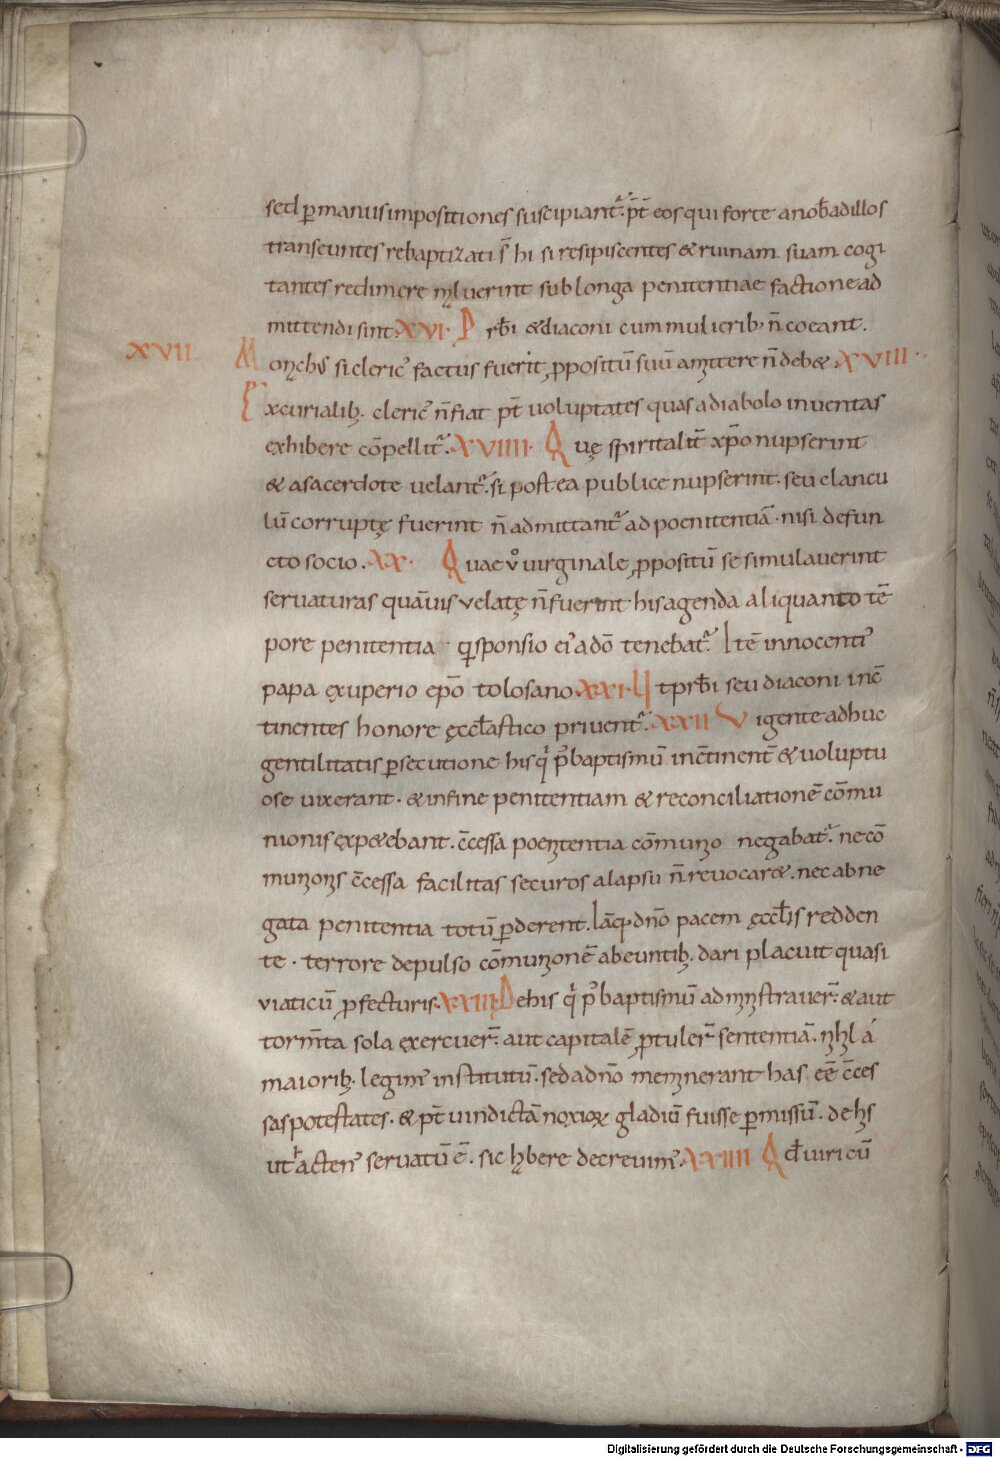 sed p̲ manus impositiones suscipiant̄ᷣ. p̄t eos qui forte a nob̄ ad illos
transeuntes rebaptizati s̄ hi si resipiscentes & ruinam suam cogi
tantes redimere mꝉuerint sub longa penitentiae factione ad
mittendi sint. XVI. Prb̄i & diaconi cum mulierib; n̄ coeant.
XVII Monchꝰ si clericꝰ factus fuerit ꝓpositū suū amittere n̄ deb&. XVIII.
Ex curialib;. clericꝰ n̄ fiat p̄t uoluptates quas a diabolo inuentas
exhibere cō̄pellit̄ᷣ. XVIIII. Quę spiritalit̄ xp̄o nupserint
& a sacerdote uelant̄ᷣ. si postea publice nupserint. seu clancu
lū corruptę fuerint n̄ admittant̄ᷣ ad poenitentiā. nisi defun
cto socio. XX. Quae ů uirginale ꝓpositū se simulauerint
seruaturas quāuis velatę n̄ fuerint his agenda aliquanto tē
pore penitentia qꝛ sponsio eiꝰ a dō tenebat̄ᷣ. Itē innocentiꝰ
papa exuperio ep̄o tolosano. XXI. Ut prb̄i seu diaconi inc̄
tinentes honore ęccl̄astico priuent̄ᷣ. XXII Vigente adhuc
gentilitatis ꝑsecutione his q̇ p̄ꝰ baptismū inc̄tinent̄ & uoluptu
ose uixerant. & in fine penitentiam & reconciliationē cōmu
nionis exp&ebant. c̄cessa poenitentia cōmunio negabat̄ᷣ. ne cō
munionis c̄cessa facilitas securos a lapsu n̄ reuocar&. nec abne
gata penitentia totū ꝑderent. Iācꝙ dn̄o pacem ęccl̄iis redden
te. terrore depulso cōmunionē abeuntib;. dari placuit quasi
viaticū ꝓfecturis. XXIII. De his q̇ p̄ꝰ baptismū administrauer̄. & aut
torm̄ta sola exercuer̄. aut capitalē ꝓtuler̄ sententiā. nihl a
maiorib;. legimꝰ institutū. sed a dn̄o meminerant has eē c̄ces
sas potestates. & p̄t uindictā noxioꝝ gladiū fuisse ꝑmissū. de his
ut̄ actenꝰ seruatū ē. sic hꝫbere decreuimꝰ. XXIIII Qd̄ uiri cū
Digitalisierung gefördert durch die Deutsche Forschungsgemeinschaft - DFG